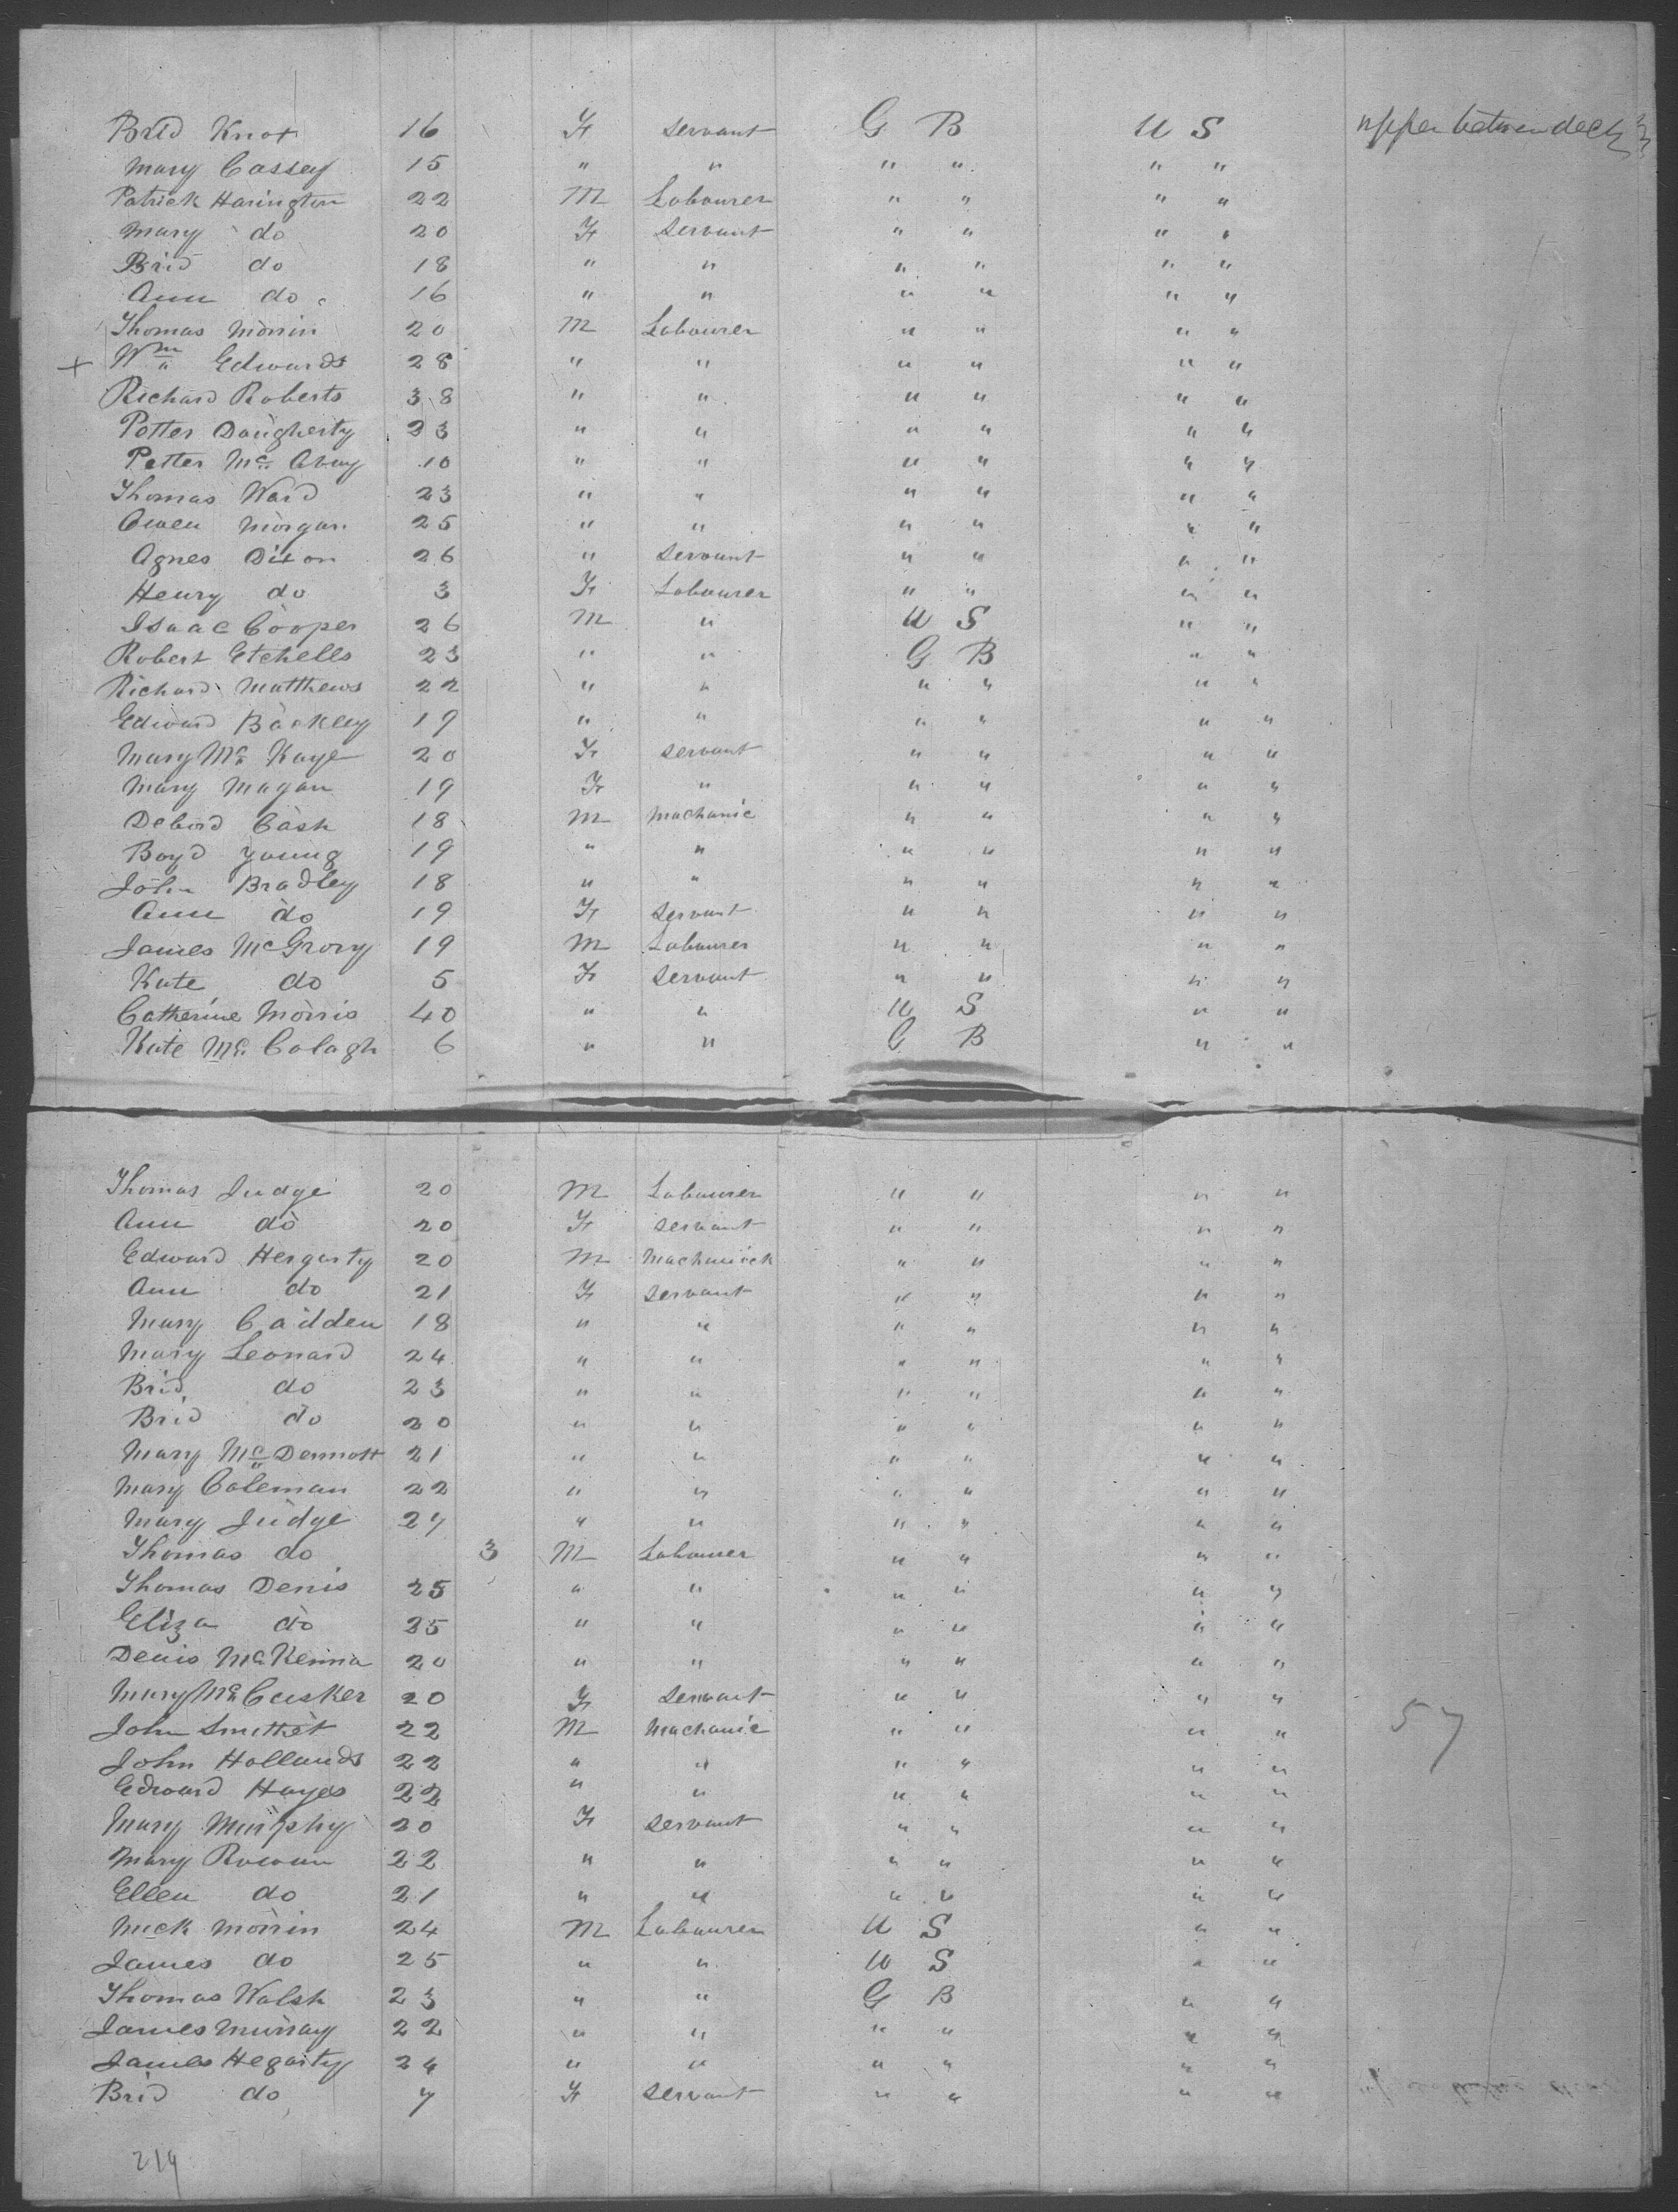 Brid Knox 16 F servant G B U S upper between decks
Mary Cassey 15 " " " " " "
Patrick Harington 22 M Labourer " " " "
Mary do 20 F servant " " " "
Brid do 18 " " " " " "
Ann do 16 " " " " " "
Thomas Morrin 20 M Labourer " " " "
+ Wm Edwards 28 " " " " " "
Richard Roberts 38 " " " " " "
Petter Daugherty 23 " " " " " "
Petter Mc Avay 10 " " " " " "
Thomas Ward 23 " " " " " "
Owen Morgan 25 " " " " " "
Agnes Dixon 26 " servant " " " "
Henry do 3 F Labourer " " " "
Isaac Cooper 26 M " U S " "
Robert Etchells 23 " " G B " "
Richard Matthews 22 " " " " " "
Edward Backley 19 " " " " " "
Mary Mc Kaye 20 F servant " " " "
Mary Magan 19 F " " " " "
Debord Cash 18 M Machanic " " " "
Boyd Young 19 " " " " " "
John Bradley 18 " " " " " "
Ann do 19 F servant " " " "
James McGrory 19 M Labourer " " " "
Kate do 5 F servant " " " "
Catherine Morris 40 " " U S " "
Kate Mc Colagh 6 " " G B " "
Thomas Judge 20 M Labourer " " " "
Ann do 20 F servant " " " "
Edward Hergarty 20 M Machanick " " " "
Ann do 21 F servant " " " "
Mary Cadden 18 " " " " " "
Mary Leonard 24 " " " " " "
Brid do 23 " " " " " "
Brid do 20 " " " " " "
Mary Mc Dermott 21 " " " " " "
Mary Coleman 22 " " " " " "
Mary Judge 27 " " " " " "
Thomas do 3 M Labourer " " " "
Thomas Denis 25 " " " " " "
Eliza do 25 " " " " " "
Denis McKenna 20 " " " " " "
Mary Mc Cusker 20 F servant " " " "
John Smithet 22 M Machanic " " " " 57
John Hollands 22 " " " " " "
Edward Hayes 22 " " " " " "
Mary Murphy 20 F servant " " " "
Mary Rowan 22 " " " " " "
Ellen do 21 " " " " " "
Mick Morrin 24 M Labourer U S " "
James do 25 " " U S " "
Thomas Walsh 23 " " G B " "
James Murray 22 " " " " " "
James Hegarty 24 " " " " " "
Brid do 7 F servant " " " "
214